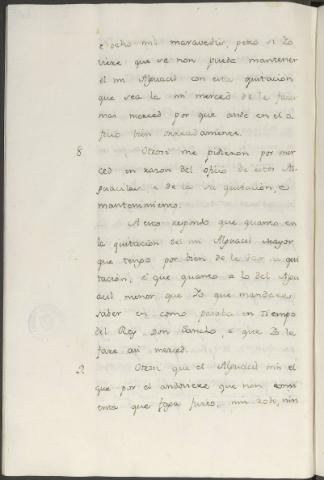 e ocho mil maravedis, pero si Yo
viere que se non pueda mantener
el mi Alguacil con esta quitacion
que sea la mi merced de le facer
mas merced por que ande en el o
ficio bien onrradamente.
8 Otrosi me pidieron por mer
ced en razon del oficio de estos Al
guaciles, e de la su quitacion, e
mantenimiento.
A esto respondo que quanto en
la quitacion del mi Alguacil mayor
que tengo por bien de le dar su qui
tacion, e que quanto a lo del Algu
acil menor que Yo que mandare
saber en como pasaba en tiempo
del Rey Don Sancho, e que Yo le
fare asi merced.
9 Otrosi que el Alguacil nin el
que por el andoviere que non cons
ienta que faga furto, nin robo, nin